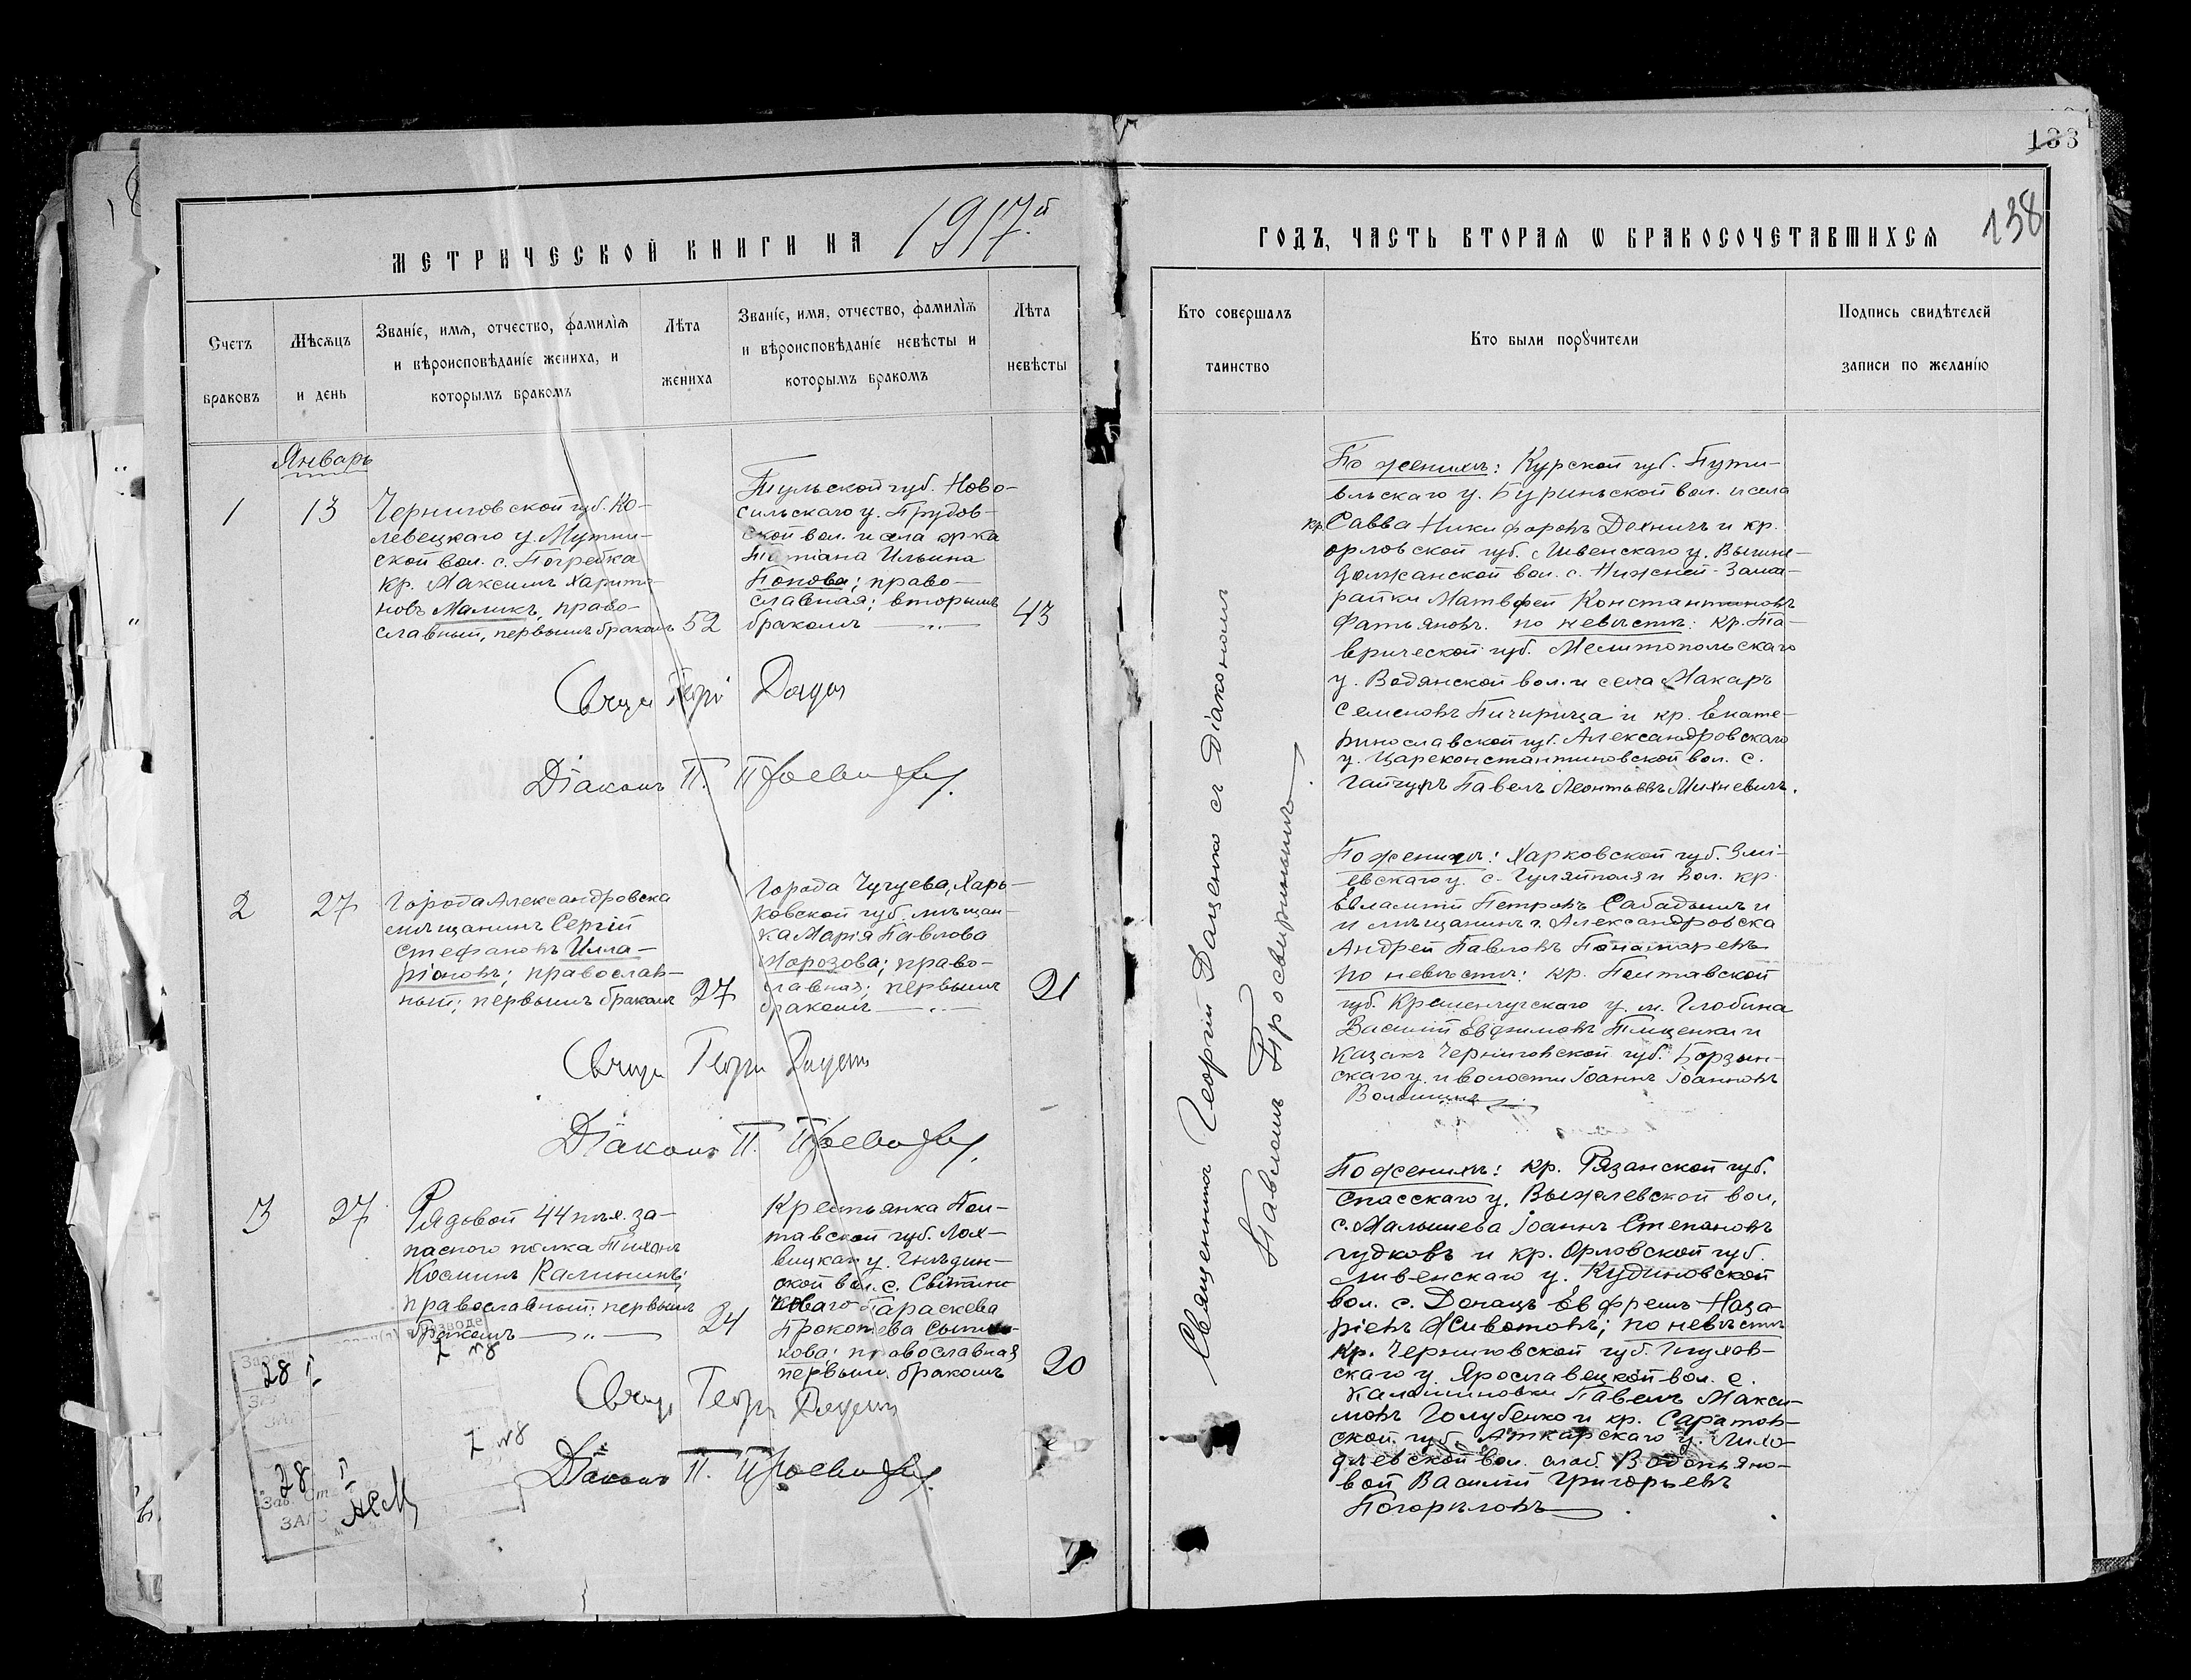 138
138
МЕТРИЧЕСКОЙ КНИГИ НА 1917й
ГОДЪ, ЧАСТЬ ВТОРАЯ Ѡ БРАКОСОЧЕТАВШИХСЯ
Счетъ
браковъ
Мѣсяцъ
и день
Званіе, имя, отчество, фамилія
и вѣроисповѣданіе жениха, и
которымъ бракомъ
Лѣта
жениха
Званіе, имя, отчество, фамилія
и вѣроисповѣданіе невѣсты и
которымъ бракомъ
Лѣта
невѣсты
Кто совершалъ
таинство
Кто были порꙋчители
Подпись свидѣтелей
записи по желанію
Январь
1
13
Черниговской губ. Ко-
левецкаго у. Мутни-
ской вол. с. Погребка
кр. Максимъ Харито-
новъ Маликъ, право-
славный, первымъ бракомъ
52
Тульской губ. Ново-
сильскаго у. Прудов-
ской вол. и села кр-ка
Татіана Ильина
Попова; право-
славная; вторымъ
бракомъ
43
Георгій
Діаконъ П.
По женихѣ: Курской губ. Пути-
вльскаго у. Буриньской вол. и села
кр. Савва Никифоровъ Дохничъ и кр.
орловской губ. Ливенскаго у. Вышне-
должанской вол. с. Нижней-Зама-
райки Матвѣй Константиновъ
Фатьяновъ. по невѣстѣ: кр. Та-
врической губ. Мелитопольскаго
у. Водянской вол. и села Макаръ
Семеновъ Пичирица и кр. Екате-
ринославской губ. Александровскаго
у. Цареконстантиновской вол. с.
Гайчуръ Павелъ Леонтьевъ Михневичъ.
Священникъ Георгій Даценко съ Діакономъ
Павломъ Просвирнинымъ
2
27
Города Александровска
мѣщанинъ Сергій
Стефановъ Илла-
ріоновъ; православ-
ный; первымъ бракомъ
27
Города Чугуева, Харь-
ковской губ. мѣщан-
ка Марія Павлова
Морозова; право-
славная; первымъ
бракомъ
21
Діаконъ П.
По женихѣ: Харковской губ. Змі-
евскаго у. с. Гуляйполя и вол. кр.
Евлампій Петровъ Сабадышъ и
и мѣщанинъ г. Александровска
Андрей Павловъ Понамаревъ
по невѣстѣ: кр. Полтавской
губ. Кременчугскаго у. м. Глобина
Василій Евфимовъ Тищенко и
казакъ Черниговской губ. Борзен-
скаго у. и волости Іоаннъ Іоанновъ
Волошинъ
3
27
Рядовой 44 пѣх. за-
паснаго полка Тихонъ
Косминъ Калининъ;
православный; первымъ
бракомъ
24
Крестьянка Пол-
тавской губ. Лох-
вицкаго у. Гнѣдин-
ской вол. с.
Параскева
Прокопіева
кова; православная
первымъ бракомъ
20
Діаконъ П.
По женихѣ: кр. Рязанской губ.
Спасскаго у. Выжлевской вол.
с. Малышева Іоаннъ Степановъ
Гудковъ и кр. Орловской губ.
Ливенскаго у. Кудиновской
вол. с. Донецъ Евфремъ Наза-
ріевъ Животовъ; по невѣстѣ
кр. Черниговской губ. Глухов-
скаго у. Ярославецкой вол. с.
Калошиновки Павелъ Макси-
мовъ Голубенко и кр. Саратов-
ской губ. Аткарскаго у. Лихо-
длевской вол. слоб. Водопьяно-
вой Василій Григорьевъ
Погорѣловъ
28 I
2 №8
2 №8
28
ЗАГС